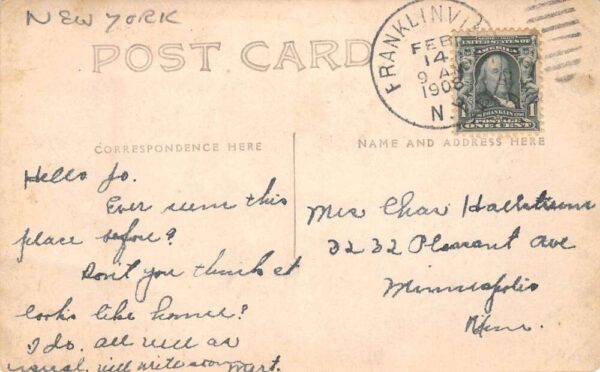 NEW YORK
POST CARD
FRANKLINVI
FEB
14
9 A
1908
N.
UNITED STATES OF AMERICA
FRANKLIN
POSTAGE
1 1
ONE CENT
CORRESPONDENCE HERE
NAME AND ADDRESS HERE
Hello Jo.
Ever seen this
place before?
Don't you think it
looks like home?
I do. all well as
usual, will write soon Mart.
Mrs Chas
3232 Pleasant Ave
Minneapolis
Minn.